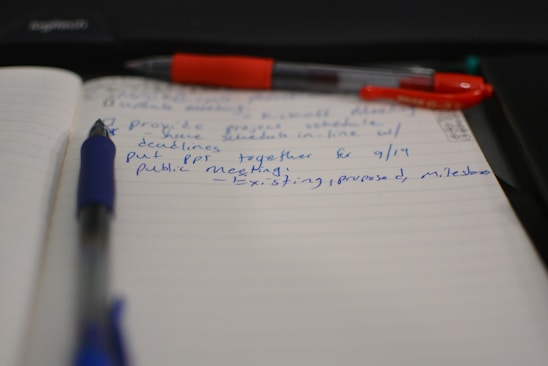 logitech
update meeting, kickoff meeting
provide project schedule
- have schedule in-line w/
deadlines
put ppt together for 9/19
public meeting.
- Existing, proposed, milestone